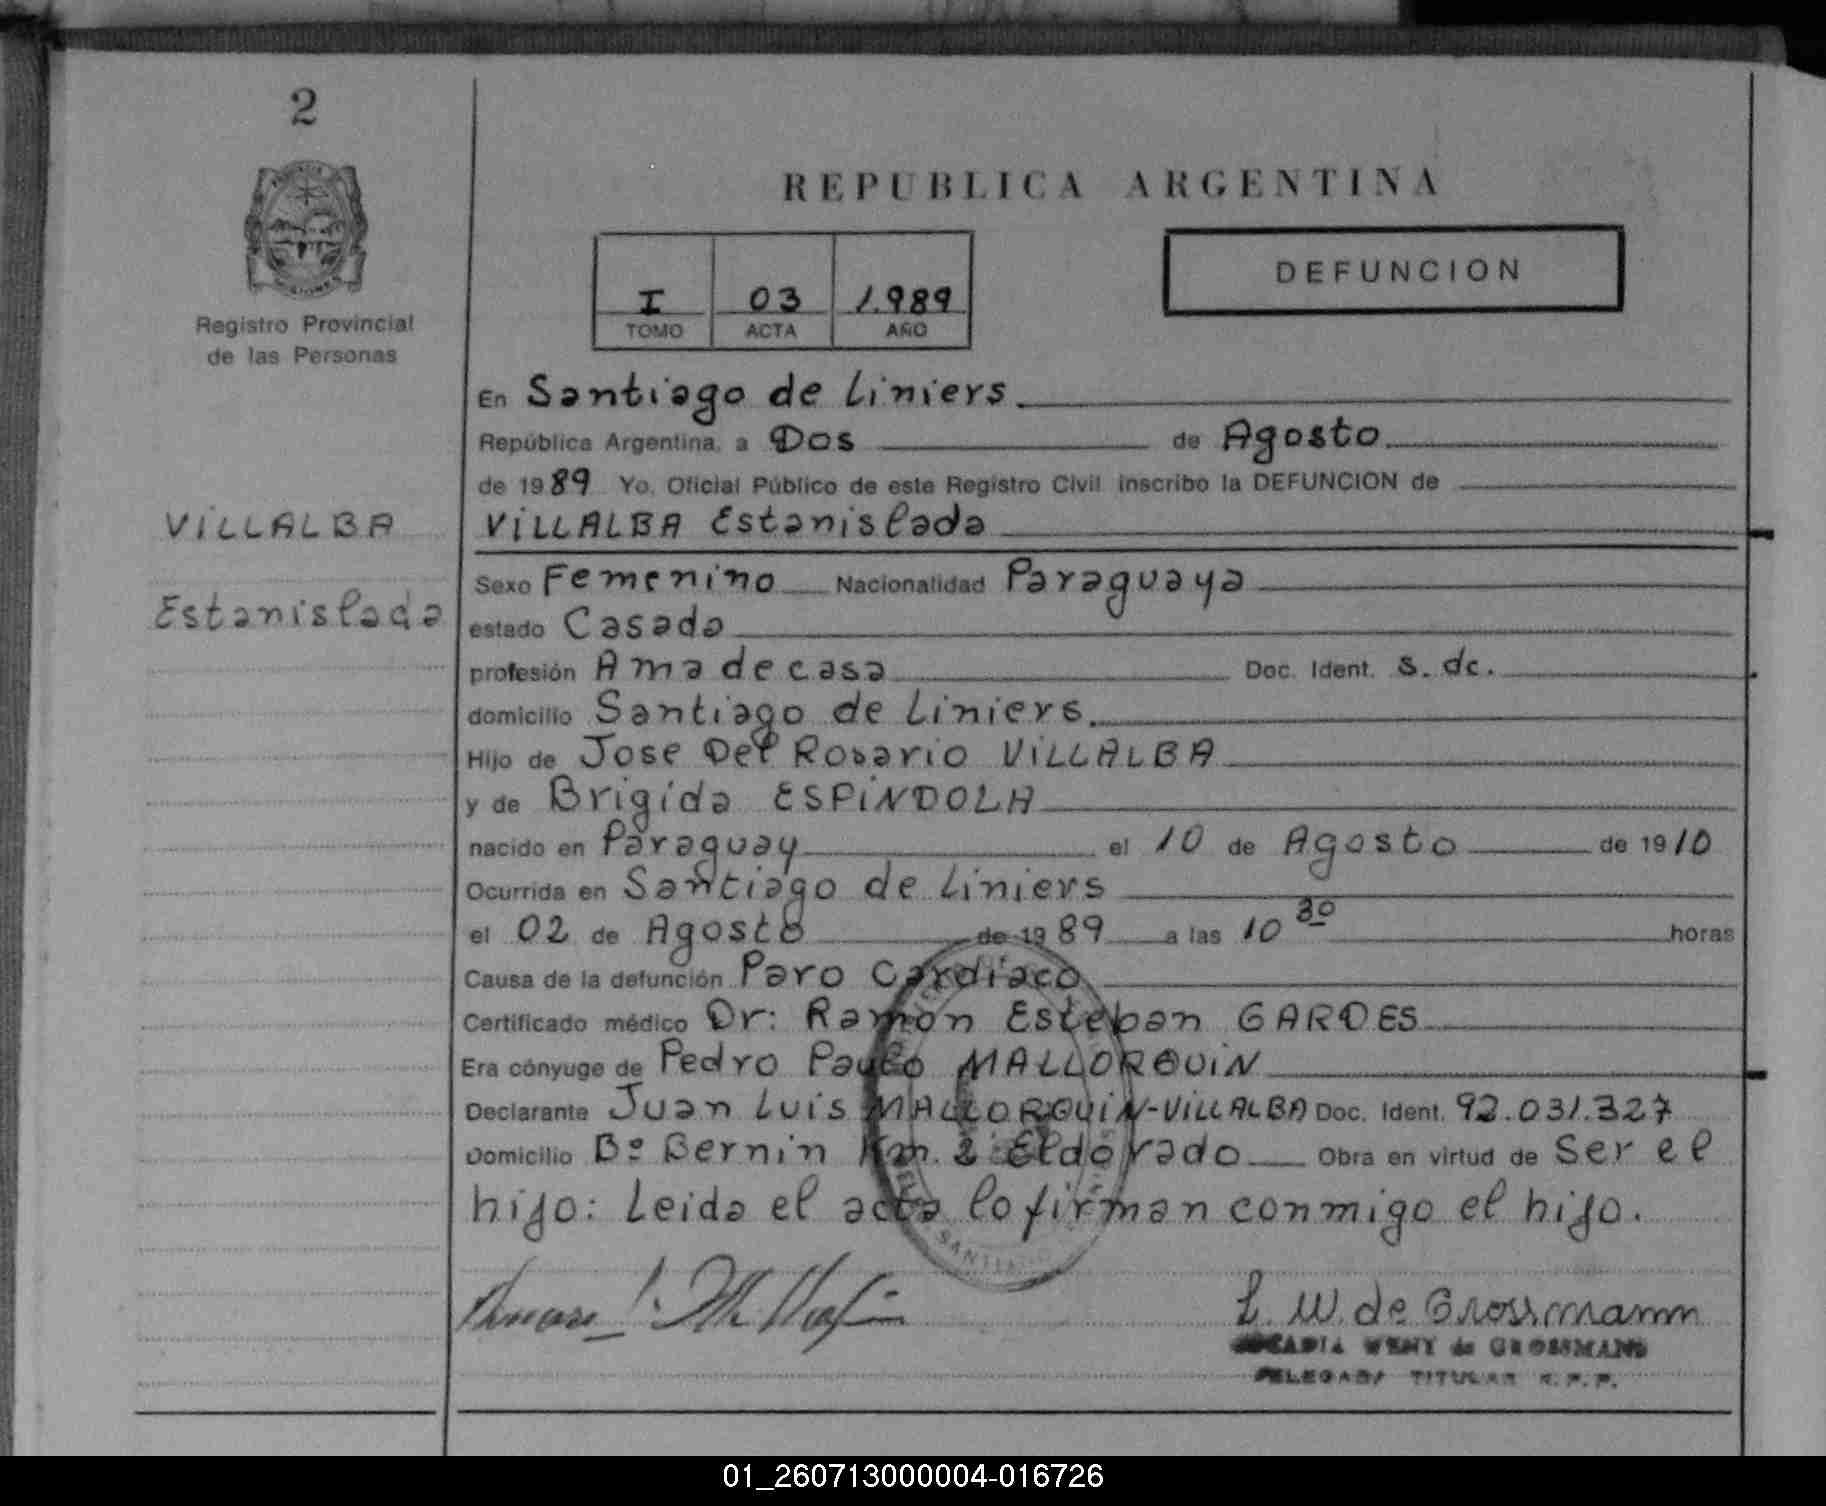 2
REPUBLICA ARGENTINA
DEFUNCION
I 03 1.989
TOMO ACTA AÑO
Registro Provincial
de las Personas
En Santiago de Liniers
República Argentina, a Dos de Agosto
de 1989 Yo, Oficial Público de este Registro Civil inscribo la DEFUNCION de
VILLALBA
VILLALBA Estanislada
Estanislada
Sexo Femenino Nacionalidad Paraguaya
estado Casada
profesión Ama de casa Doc. Ident. s. dc.
domicilio Santiago de Liniers.
Hijo de Jose Del Rosario VILLALBA
y de Brigida ESPINDOLA
nacido en Paraguay el 10 de Agosto de 1910
Ocurrida en Santiago de Liniers
el 02 de Agosto de 1989 a las 10 30 horas
Causa de la defunción Paro Cardiaco
Certificado médico Dr: Ramon Esteban GARDES
Era cónyuge de Pedro Paulo MALLORQUIN
Declarante Juan Luis MALLORQUIN-VILLALBA Doc. Ident. 92.031.327
Domicilio Bº Bernin Km. 2 Eldorado Obra en virtud de Ser el
hijo: Leida el acta lo firman conmigo el hijo.
L. W. de Grossmann
WENY de GROSSMANN
DELEGADA TITULAR R.P.P.
SANTIAGO
01_260713000004-016726